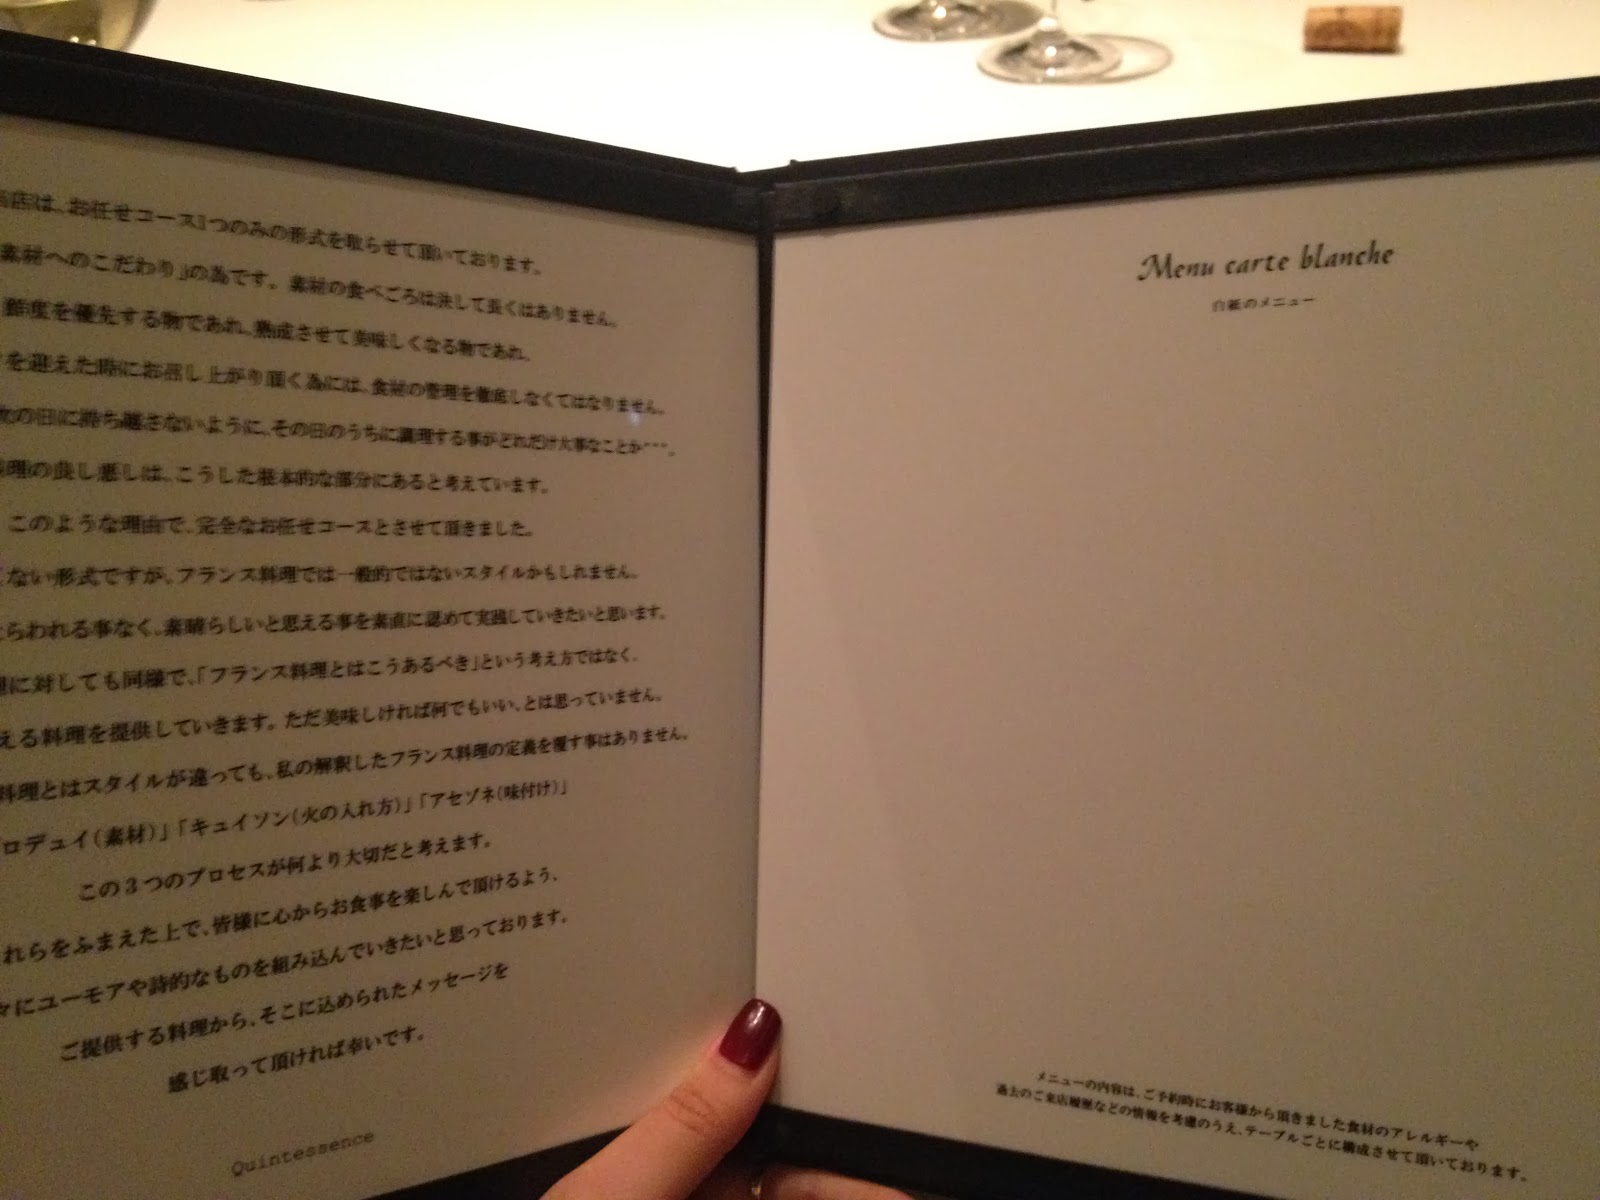 当店は、お任せコース1つのみの形式を取らせて頂いております。
素材へのこだわり」の為です。素材の食べごろは決して長くはありません。
鮮度を優先する物であれ、熟成させて美味しくなる物であれ、
を迎えた時にお召し上がり頂く為には、食材の管理を徹底しなくてはなりません。
次の日に持ち越さないように、その日のうちに調理する事がどれだけ大事なことか・・・。
料理の良し悪しは、こうした根本的な部分にあると考えています。
このような理由で、完全なお任せコースとさせて頂きました。
ない形式ですが、フランス料理では一般的ではないスタイルかもしれません。
とらわれる事なく、素晴らしいと思える事を素直に認めて実践していきたいと思います。
理に対しても同様で、「フランス料理とはこうあるべき」という考え方ではなく、
える料理を提供していきます。ただ美味しければ何でもいい、とは思っていません。
料理とはスタイルが違っても、私の解釈したフランス料理の定義を覆す事はありません。
ロデュイ(素材)」「キュイソン(火の入れ方)」「アセゾネ(味付け)」
この3つのプロセスが何より大切だと考えます。
れらをふまえた上で、皆様に心からお食事を楽しんで頂けるよう、
々にユーモアや詩的なものを組み込んでいきたいと思っております。
ご提供する料理から、そこに込められたメッセージを
感じ取って頂ければ幸いです。
Quintessence
Menu carte blanche
白紙のメニュー
メニューの内容は、ご予約時にお客様から頂きました食材のアレルギーや
過去のご来店履歴などの情報を考慮のうえ、テーブルごとに構成させて頂いております。